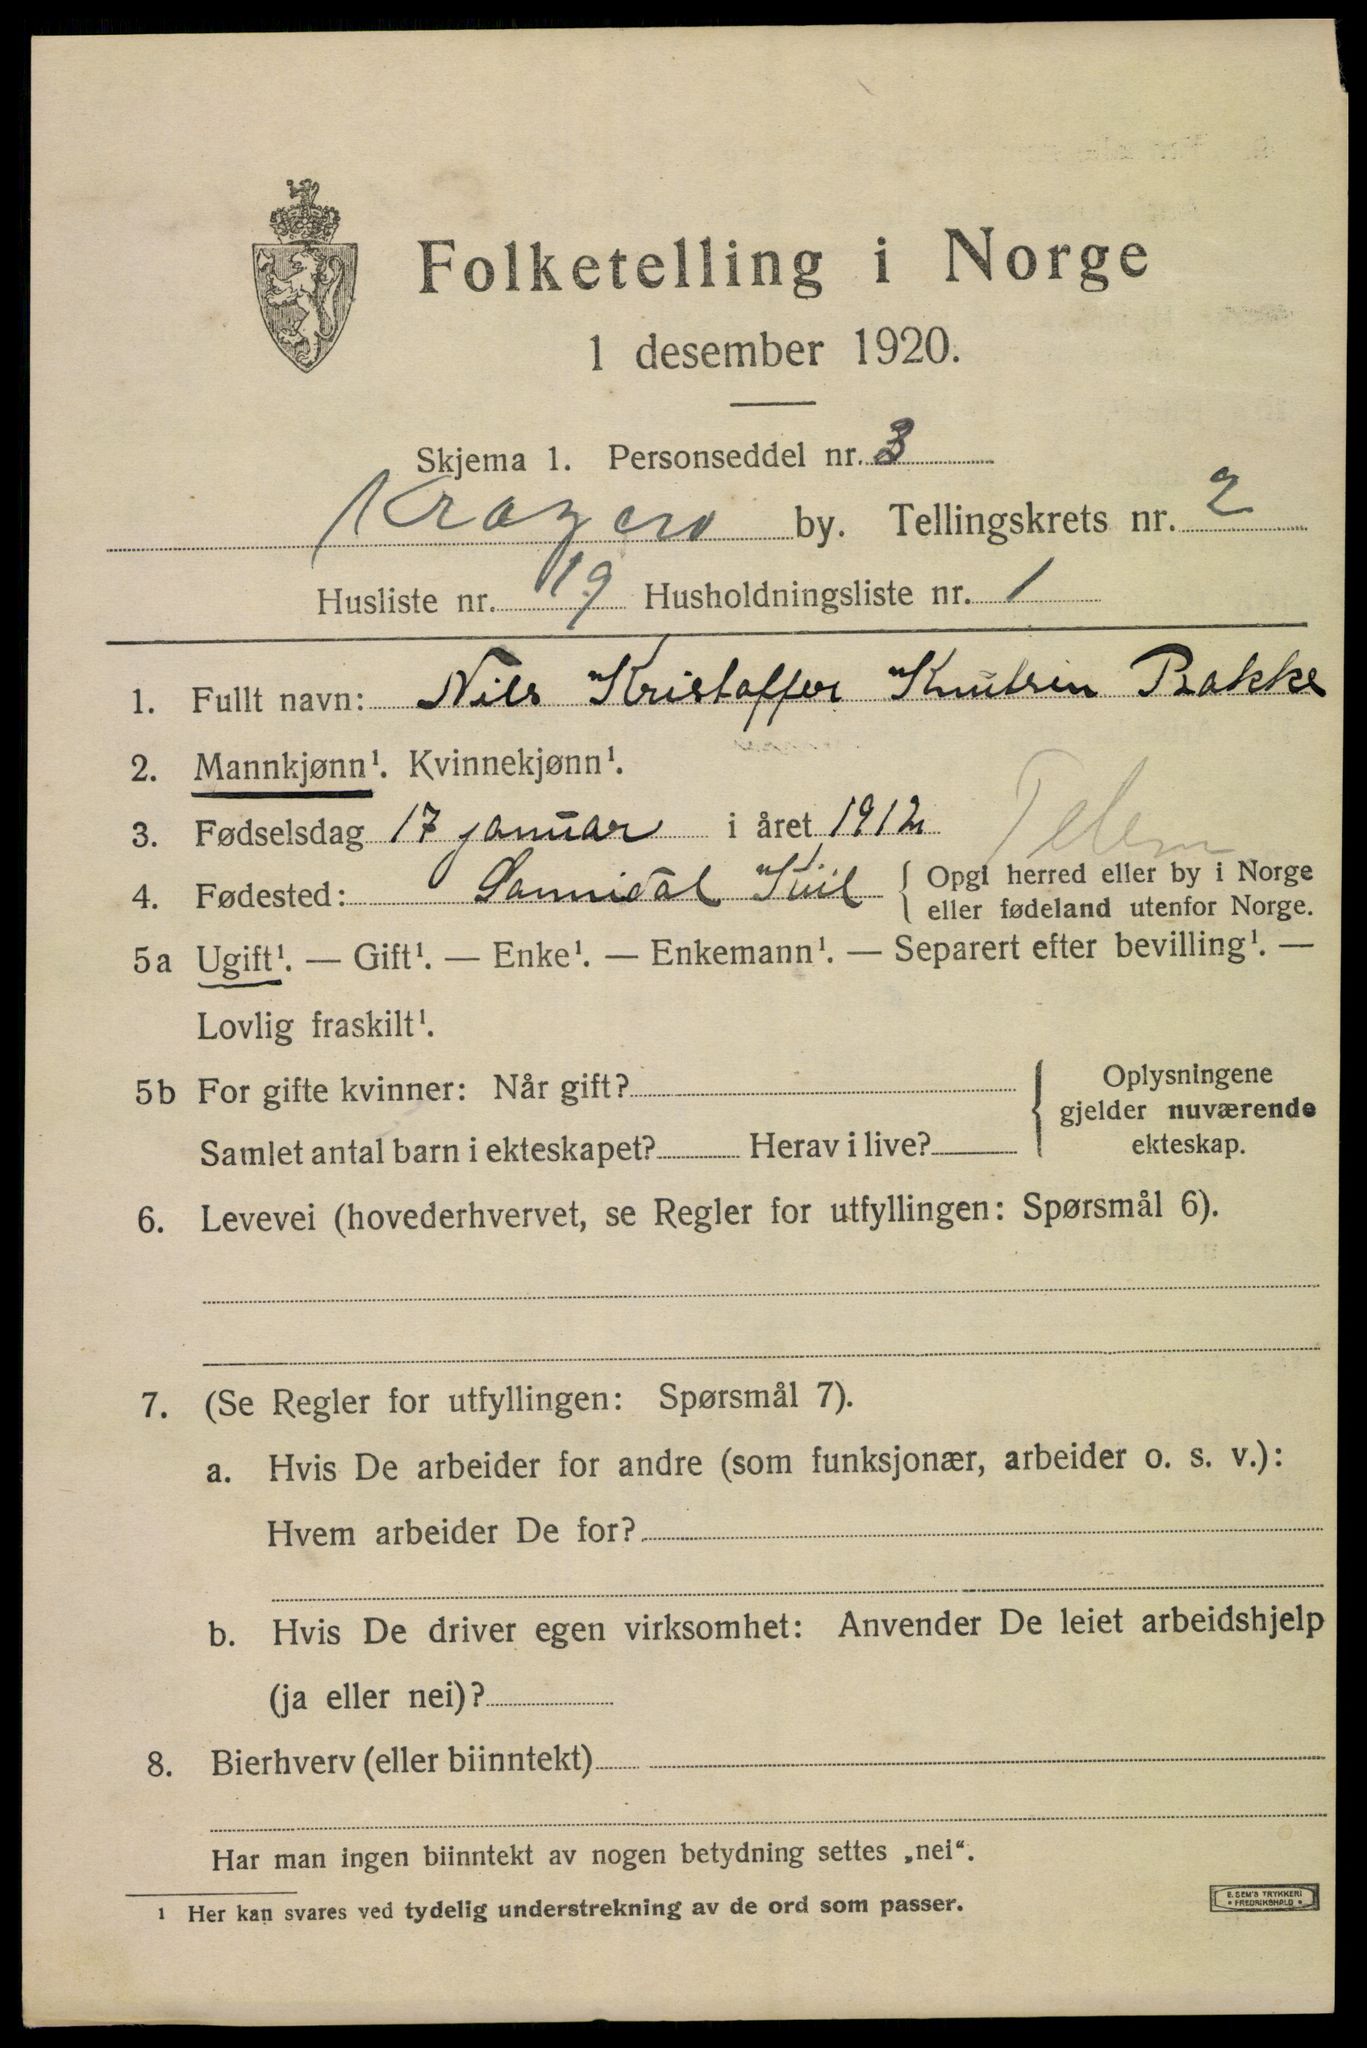 Folketelling i Norge
1 desember 1920.
Skjema 1. Personseddel nr. 3
Kragerø by. Tellingskrets nr. 2
Husliste nr. 19 Husholdningsliste nr. 1
1. Fullt navn: Nils Kristoffer Knutsen Bakke
2. Mannkjønn¹. Kvinnekjønn¹.
3. Fødselsdag 17 januar i året 1912
Telem
4. Fødested: Sannidal Kiil { Opgi herred eller by i Norge
eller fødeland utenfor Norge.
5a Ugift¹. — Gift¹. — Enke¹. — Enkemann¹. — Separert efter bevilling¹. —
Lovlig fraskilt¹.
5b For gifte kvinner: Når gift?
Samlet antal barn i ekteskapet? Herav i live?
} Oplysningene
gjelder nuværende
ekteskap.
6. Levevei (hovederhvervet, se Regler for utfyllingen: Spørsmål 6).
7. (Se Regler for utfyllingen: Spørsmål 7).
a. Hvis De arbeider for andre (som funksjonær, arbeider o. s. v.):
Hvem arbeider De for?
b. Hvis De driver egen virksomhet: Anvender De leiet arbeidshjelp
(ja eller nei)?
8. Bierhverv (eller biinntekt)
Har man ingen biinntekt av nogen betydning settes „nei“.
¹ Her kan svares ved tydelig understrekning av de ord som passer.
E. SEM'S TRYKKERI
• FREDRIKSHALD •